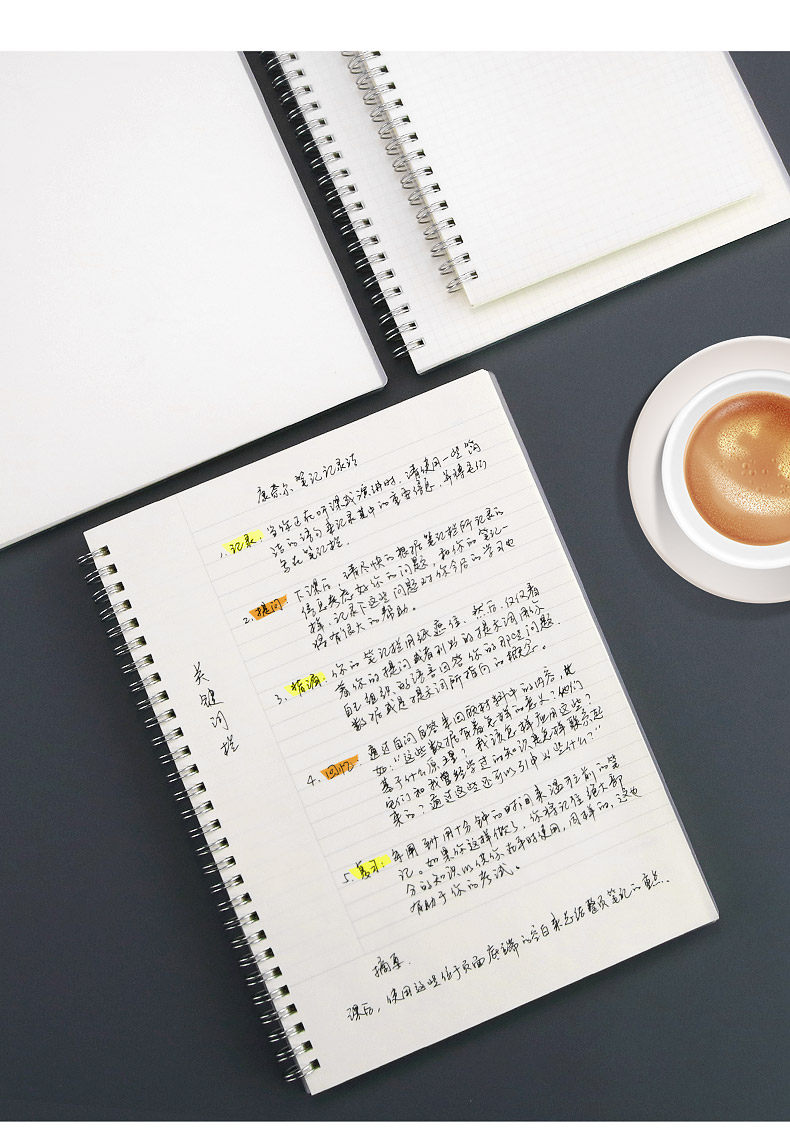 康奈尔笔记记录法
1. 记录: 当你正在听课或演讲时,请使用一些简
洁的语句来记录其中的重要信息,并将它们
写在笔记栏。
2. 提问: 下课后,请尽快的根据笔记栏所记录的
信息考虑好你的问题,和你的笔记一
样,记录下这些问题对你今后的学习也
将有很大的帮助。
3. 背诵: 你的笔记栏用纸遮住,然后,仅仅看
着你的提问或者列出的提示词用你
自己组织的语言回答你的那些问题、
数据或是提示词所指向的概念。
4. 回忆: 通过自问自答来回顾材料中的内容,比
如:"这些数据有着怎样的意义?他们
基于什么原理?我该怎样应用这些?
它们和我曾经学过的知识是怎样联系起
来的?通过这些还可以引申出些什么?"
5. 复习: 每周到用十分钟的时间来温习前的笔
记。如果你这样做了,你将记住绝大部
分的知识以供你在平时使用,同样的,这也
有助于你的考试。
关键词栏
摘要.
课后,使用这些位于页面底端的空白来总结整页笔记的重点.